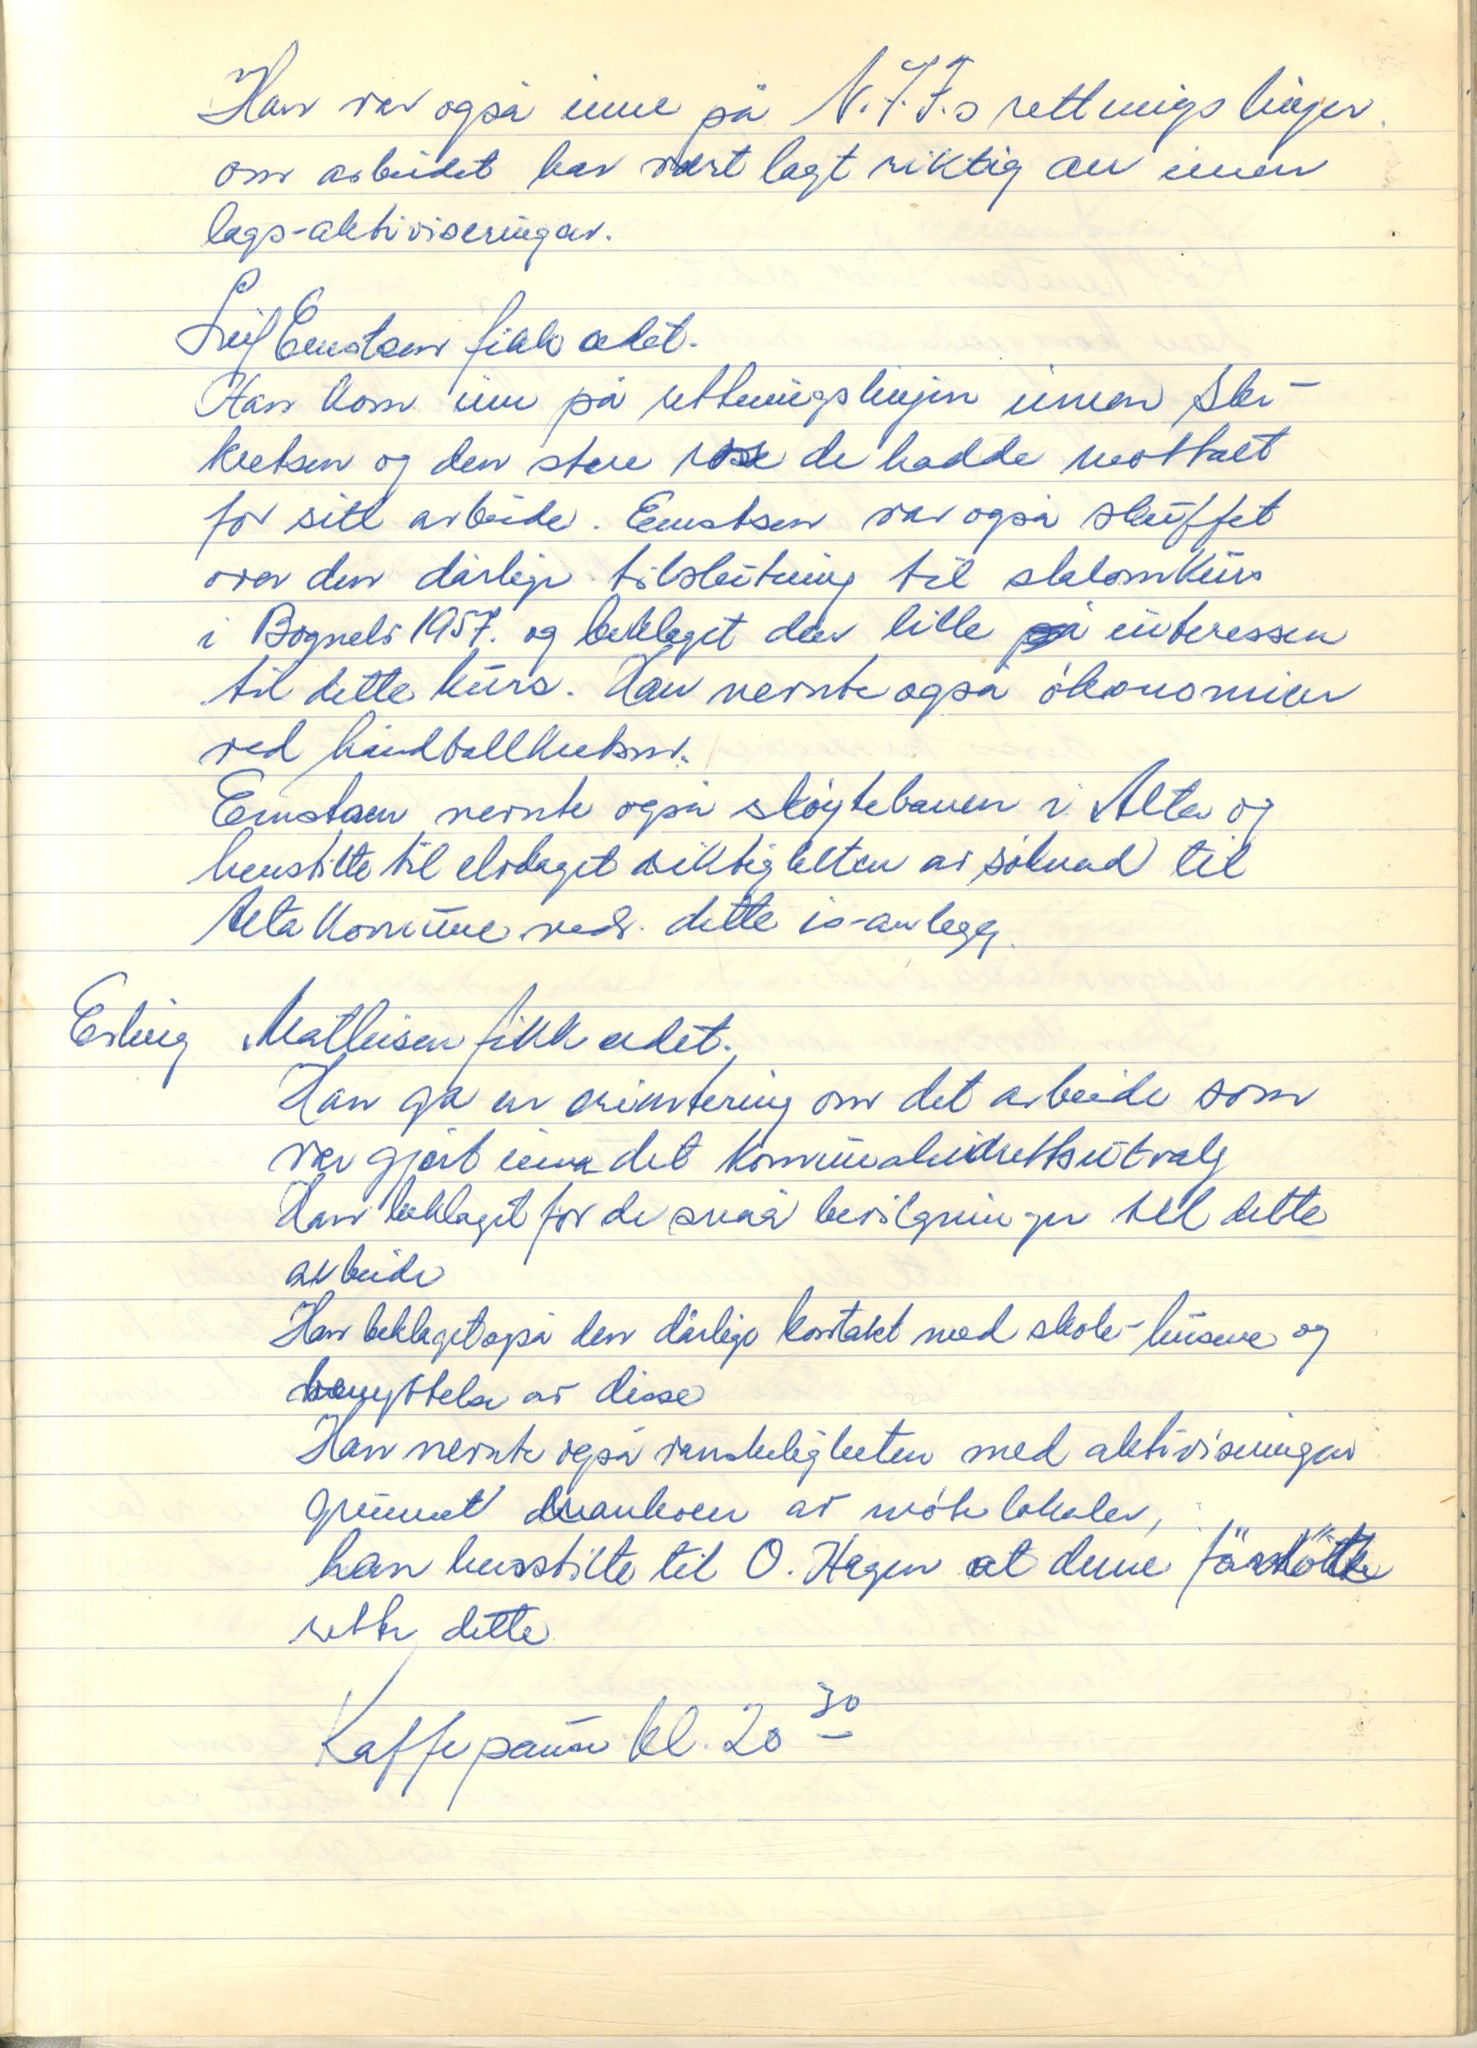 Han var også inne på N.I.F.s rettningslinjer
om arbeidet har vært lagt riktig an innen
lags-aktiviseringen.
Leif Ernstsen fikk ordet.
Han kom inn på rettningslinjen innen Ski-
kretsen og den store ros de hadde mottatt
for sitt arbeide. Ernstsen var også skuffet
over den dårlige tilslutning til slalomkurs
i Bognelv 1957. og beklaget den lille interessen
til dette kurs. Han nevnte også økonomien
ved håndballkretsen.
Ernstsen nevnte også skøytebanen i Alta og
henstilte til elvdaget riktigheten av søknad til
Alta Kommune vedr. dette is-anlegg.
Erling Mathisen fikk ordet.
Han ga en orientering om det arbeide som
var gjort innen det kommunaleidrettsutvalg
Han beklaget for de små bevilgninger til dette
arbeide
Han beklaget også den dårlige kontakt med skole-husene og
benyttelse av disse
Han nevnte også vanskeligheten med aktiviseringen
grunnet mankoen av møtelokaler,
han henstilte til O. Hagen at denne
rette dette
Kaffepause kl. 20 30